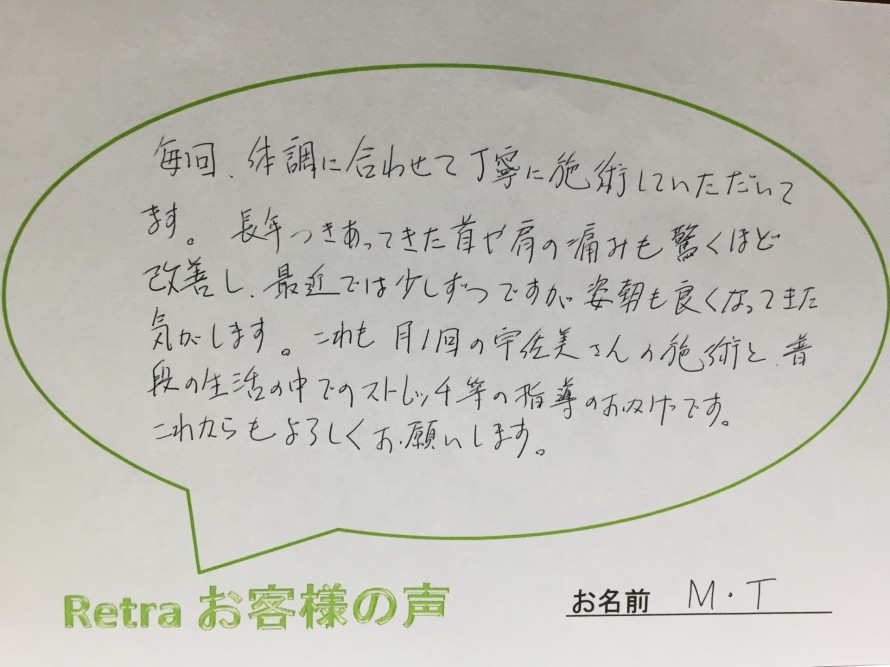 毎回、体調に合わせて丁寧に施術していただいて
ます。長年つきあってきた首や肩の痛みも驚くほど
改善し、最近では少しずつですが姿朝も良くなってきた
気がします。これも月1回の宇佐美さんの施術と、普
段の生活の中でのストレッチ等の指導のおかげです。
これからもよろしくお願いします。
Retra お客様の声
お名前 M・T